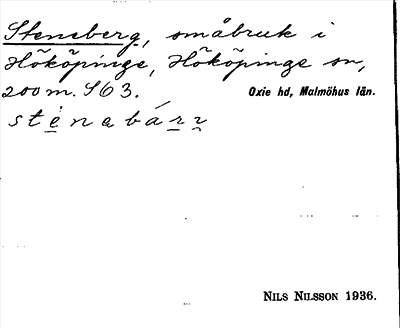 Steneberg, småbruk i
Hököpinge, Hököpinge sn,
200 m. S 63. Oxie hd, Malmöhus län.
stènabárr
NILS NILSSON 1936.